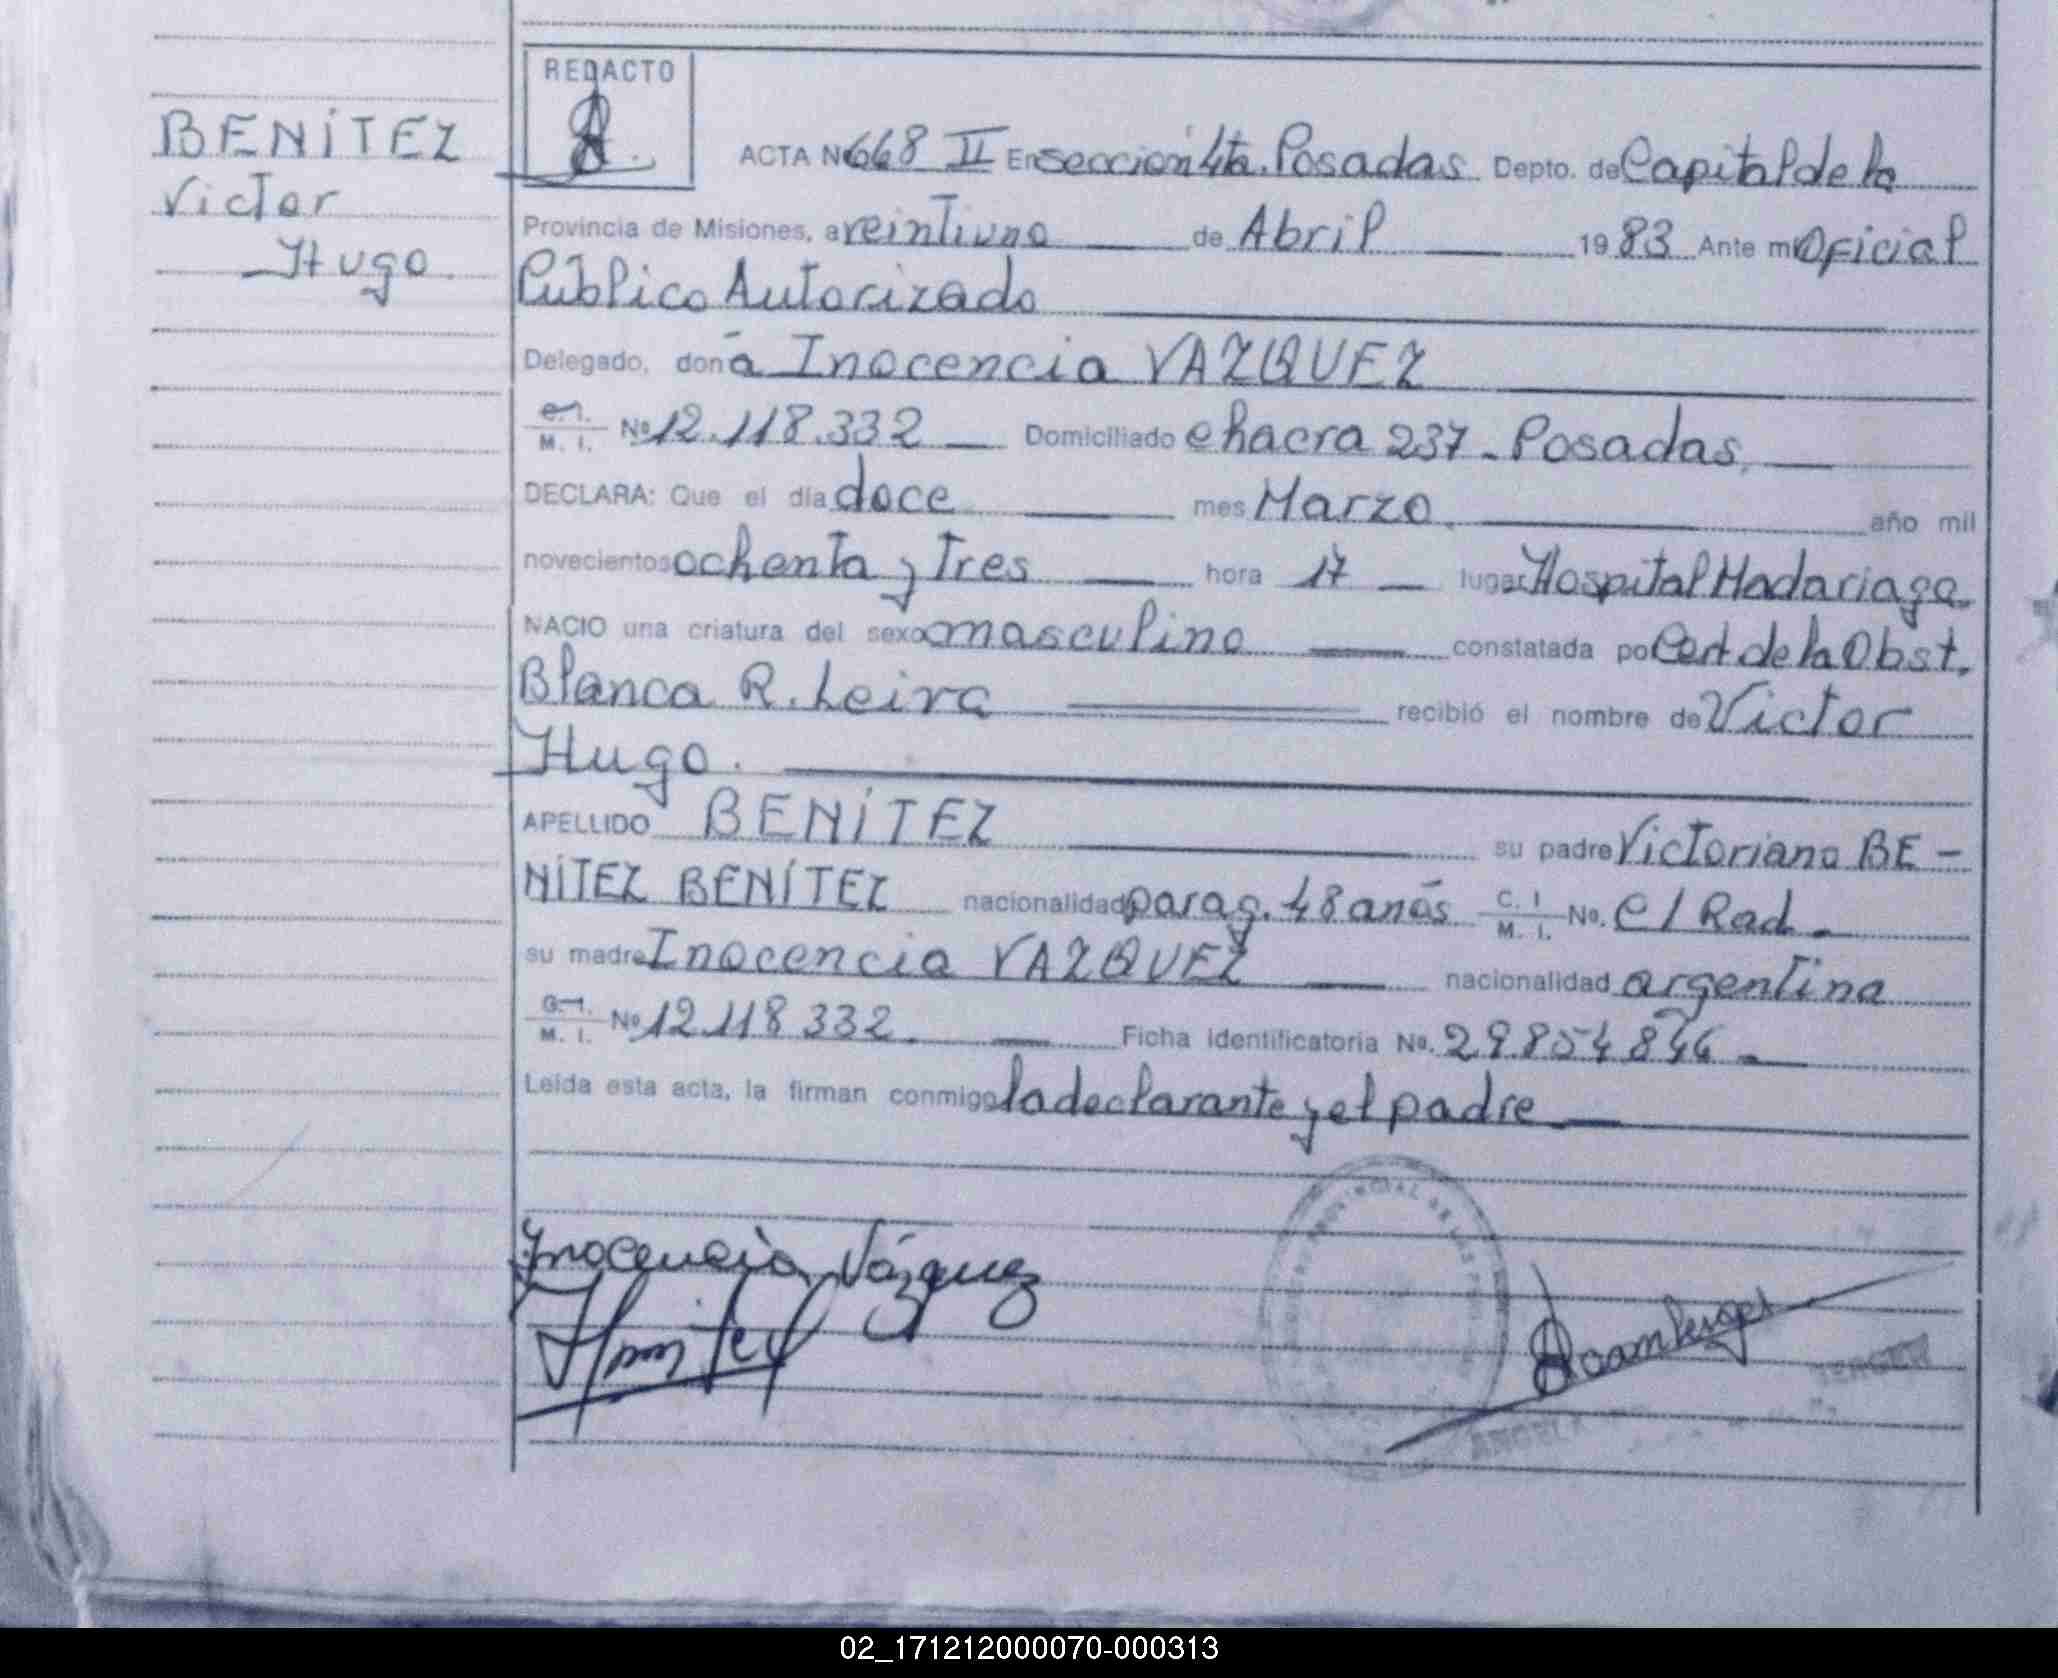 REDACTO
BENÍTEZ
Victor
Hugo.
ACTA Nº 668 II En seccion 4ta. Posadas Depto. de Capital de la
Provincia de Misiones, a veintiuno de Abril 1983 Ante mi Oficial
Público Autorizado
Delegado, doña Inocencia VAZQUEZ
C. I. M. I. Nº 12.118.332 Domiciliado chacra 237 - Posadas,
DECLARA: Que el día doce mes Marzo año mil
novecientos ochenta y tres hora 17 lugar Hospital Madariaga
NACIO una criatura del sexo masculino constatada por Cert. de la Obst.
Blanca R. Leiva recibió el nombre de Victor
Hugo.
APELLIDO BENÍTEZ su padre Victoriano BE-
NÍTEZ BENÍTEZ nacionalidad parag. 48 años C. I M. I. No. C/ Rad.
su madre Inocencia VAZQUEZ nacionalidad argentina
C. I. M. I. Nº 12118332. Ficha identificatoria No. 29854846
Leída esta acta, la firman conmigo la declarante y el padre
Inocencia Vázquez
02_171212000070-000313